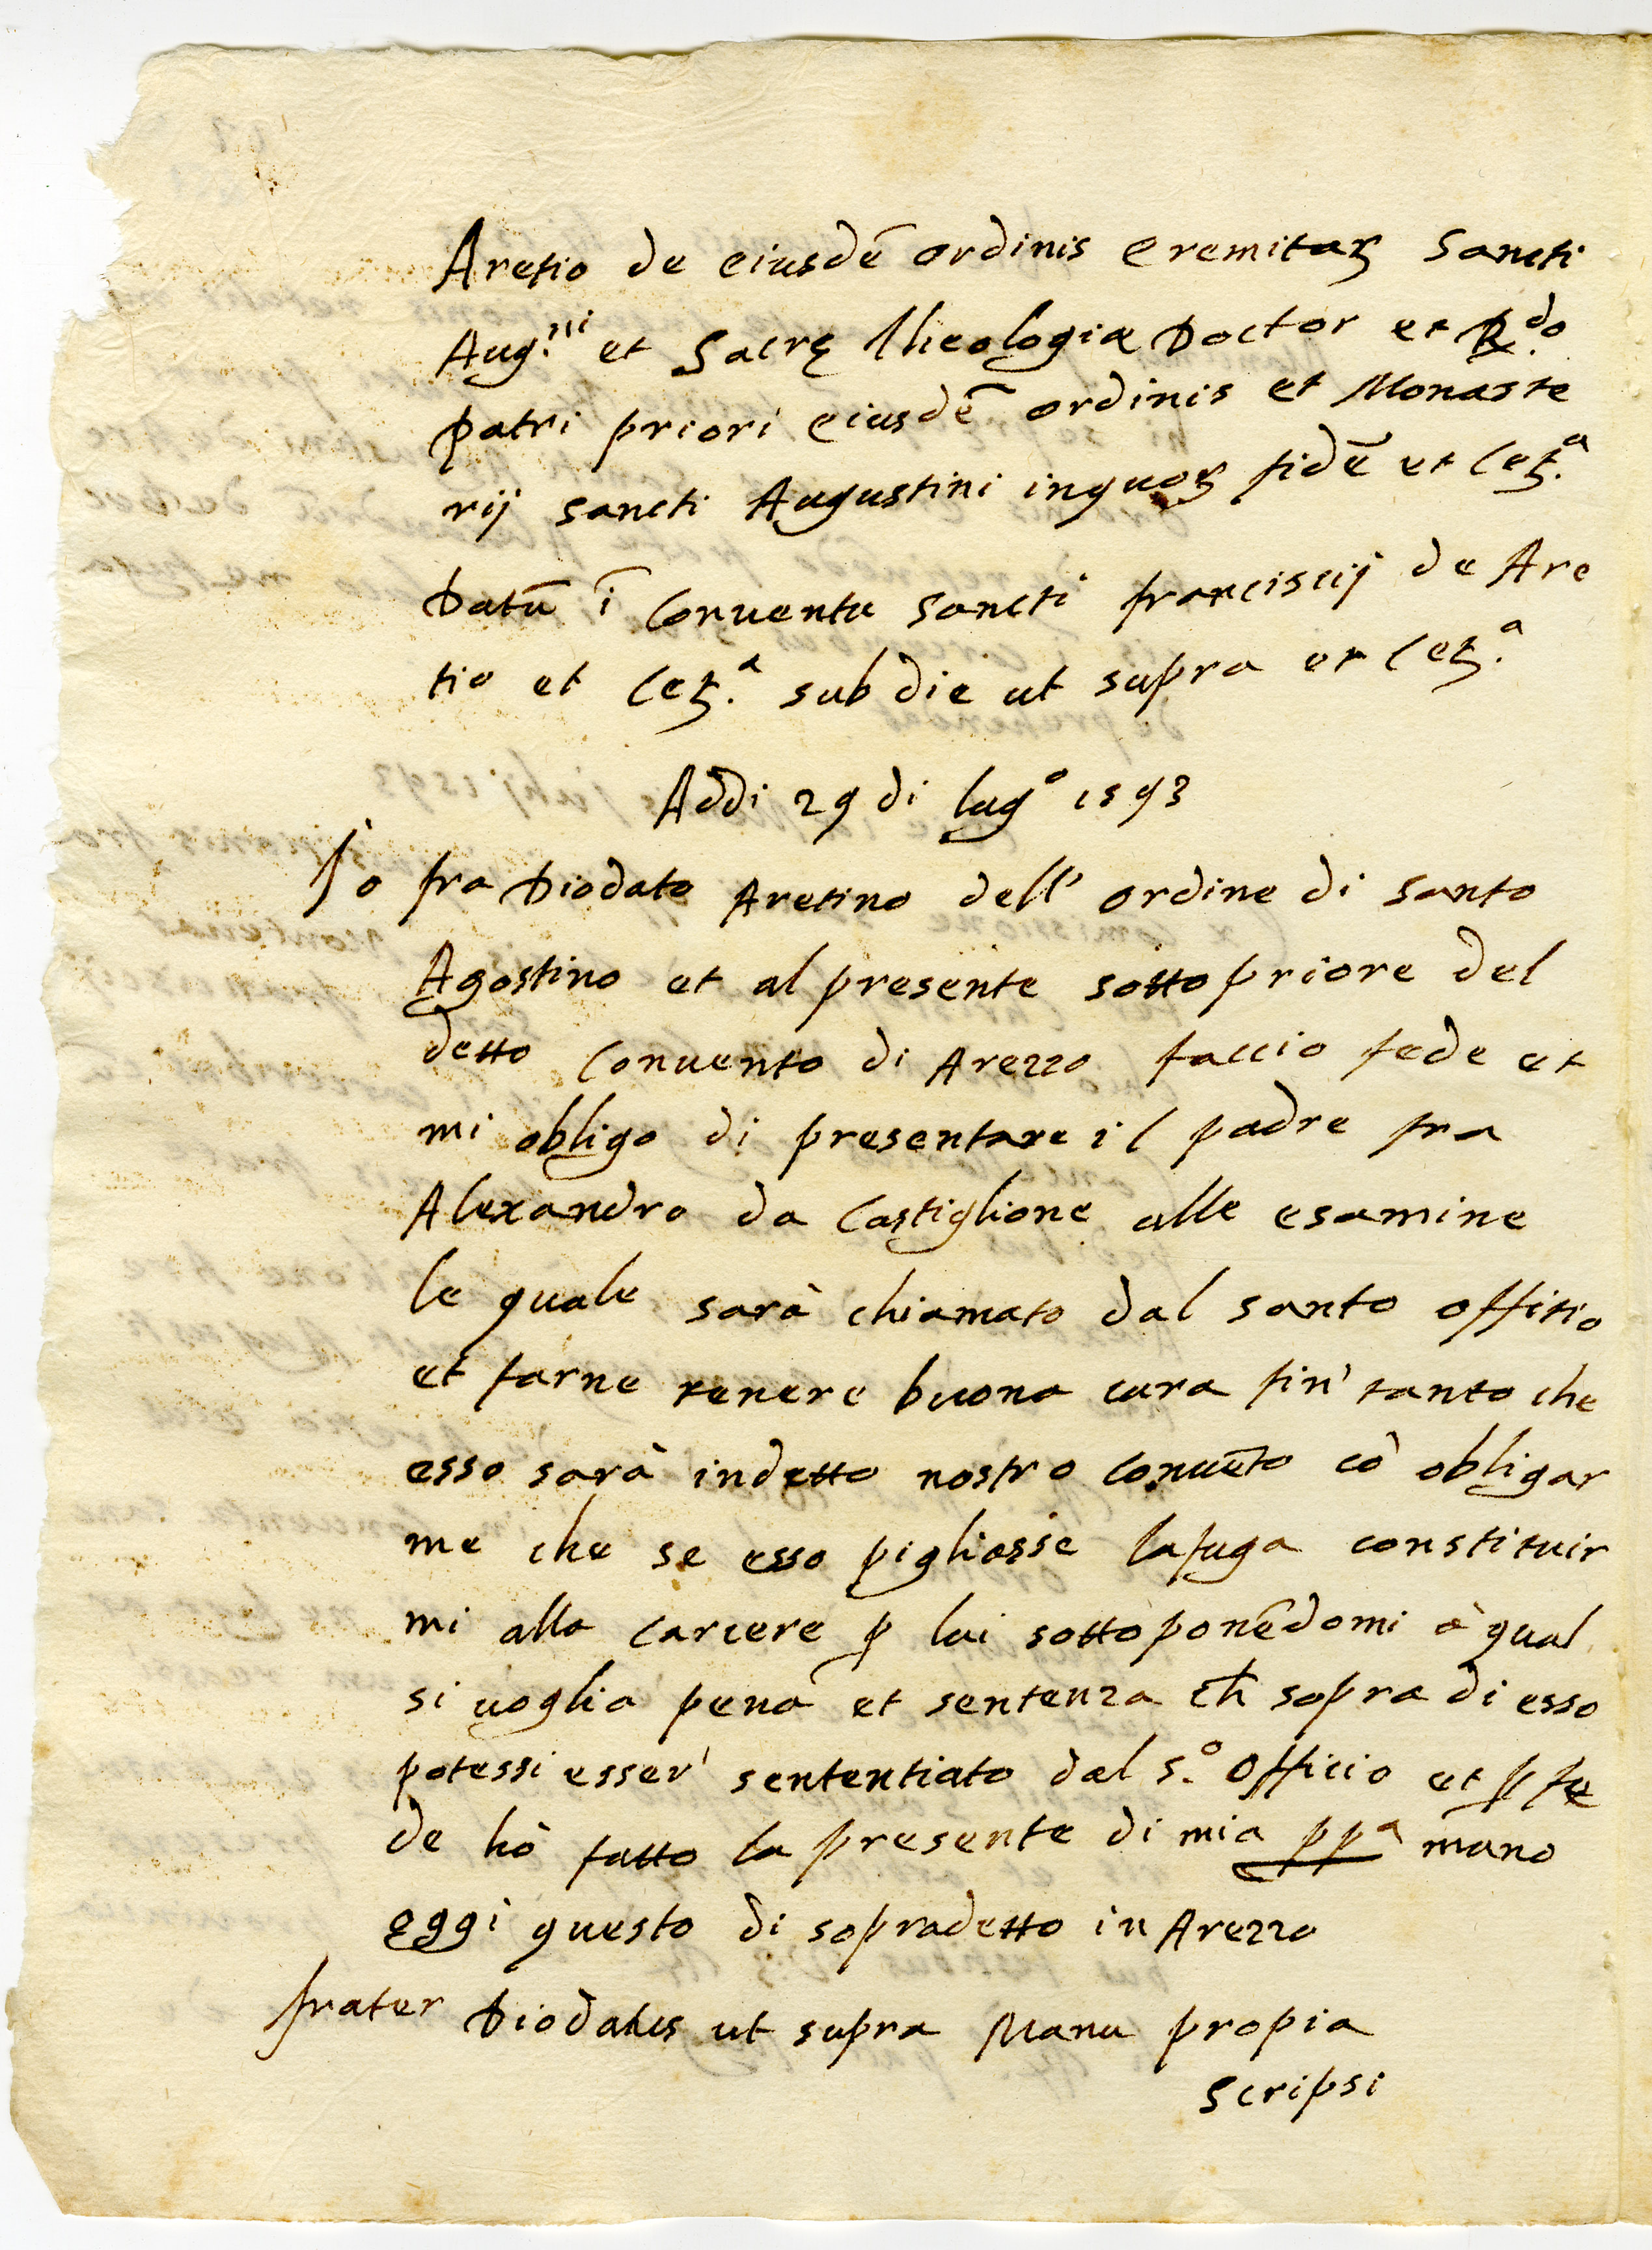 Aretio de eiusdē ordinis eremitaꝝ Sancti
Aug.ni et Sacrę Theologiæ Doctor et R.do
Patri priori eiusdē ordinis et Monaste
rij sancti Augustini inquoꝝ fidē et Cetꝝ.a
Datū ī Conuentu sancti franciscij de Are
tio et Cetꝝ.a sub die ut supra et Cetꝝ.a
Addi 29 di lug.o 1593
Io fra Diodato Aretino dell' ordine di santo
Agostino et al presente sotto priore del
detto Conuento di Arezzo faccio fede et
mi obligo di presentare il padre fra
Alexandro da Castiglione alle esamine
le quale sarà chiamato dal santo offitio
et farne tenere buona cura fin' tanto che
esso sarà indetto nostro conuēto cō obligar
me che se esso pigliasse lafuga constituir
mi alla carcere ꝑ lui sottoponēdomi à qual
si uoglia pena et sentenza ch̄ sopra di esso
potessi esser' sententiato dal s.o officio et ꝑ fe
de hò fatto la presente di mia ꝓp.a mano
oggi questo di sopradetto in Arezzo
frater Diodatus ut supra Manu propia
scripsi